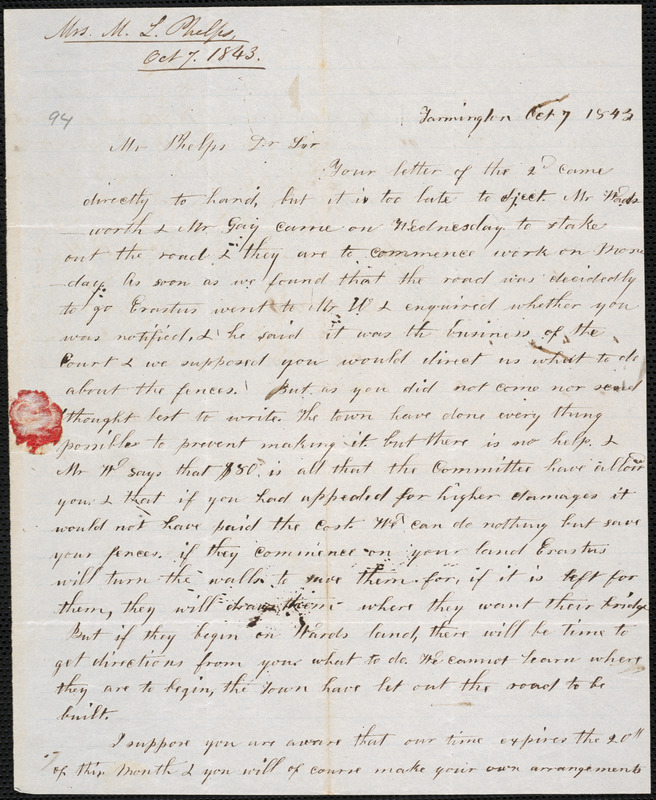 Mrs. M. L. Phelps,
Oct 7. 1843.
94
Farmington Oct 7 1843
Mr Phelps Dr Sir
Your letter of the 2d came
directly to hand, but it is too late to eject. Mr Wads
-worth & Mr Gay came on Wednesday to stake
out the road & they are to commence work on Mon
-day. As soon as we found that the road was decidedly
to go Erastus went to Mr W & enquired whether you
was notified, & he said it was the business of the
Court & we supposed you would direct us what to do
about the fences. But as you did not come nor send
I thought best to write. The town have done every thing
possible to prevent making it but there is no help. &
Mr Wd says that $50. is all that the Committee have allow
you & that if you had appealed for higher damages it
would not have paid the cost. We can do nothing but save
your fences. if they commence on your land Erastus
will turn the walls to save them for, if it is left for
them, they will draw them where they want their bridge
But if they begin on Wards land, there will be time to
get directions from you what to do. We cannot learn where
they are to begin, the Town have let out the road to be
built.
I suppose you are aware that our time expires the 20th
of this month & you will of course make your own arrangements